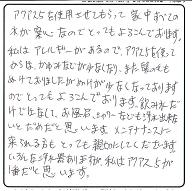 アクアス5を使用させてもらって家中おどこの
水が安心なのでとてもよろこんでおります。
私はアレルギーがあるので、アクアス5を使って
からは、かゆみなどが少なくなり、また髪の毛も
ぬけておりましたがぬけが少なくなっております
のでとてもよろこんでおります。飲み水だ
けでなくて、お風呂、シャワーなども浄水出来な
いとだめだと思います。メンテナンスに
来られる方もとっても親切にしてくださいます
いろんな浄水器ありますが、私はアクアス5が
1番だと思います。